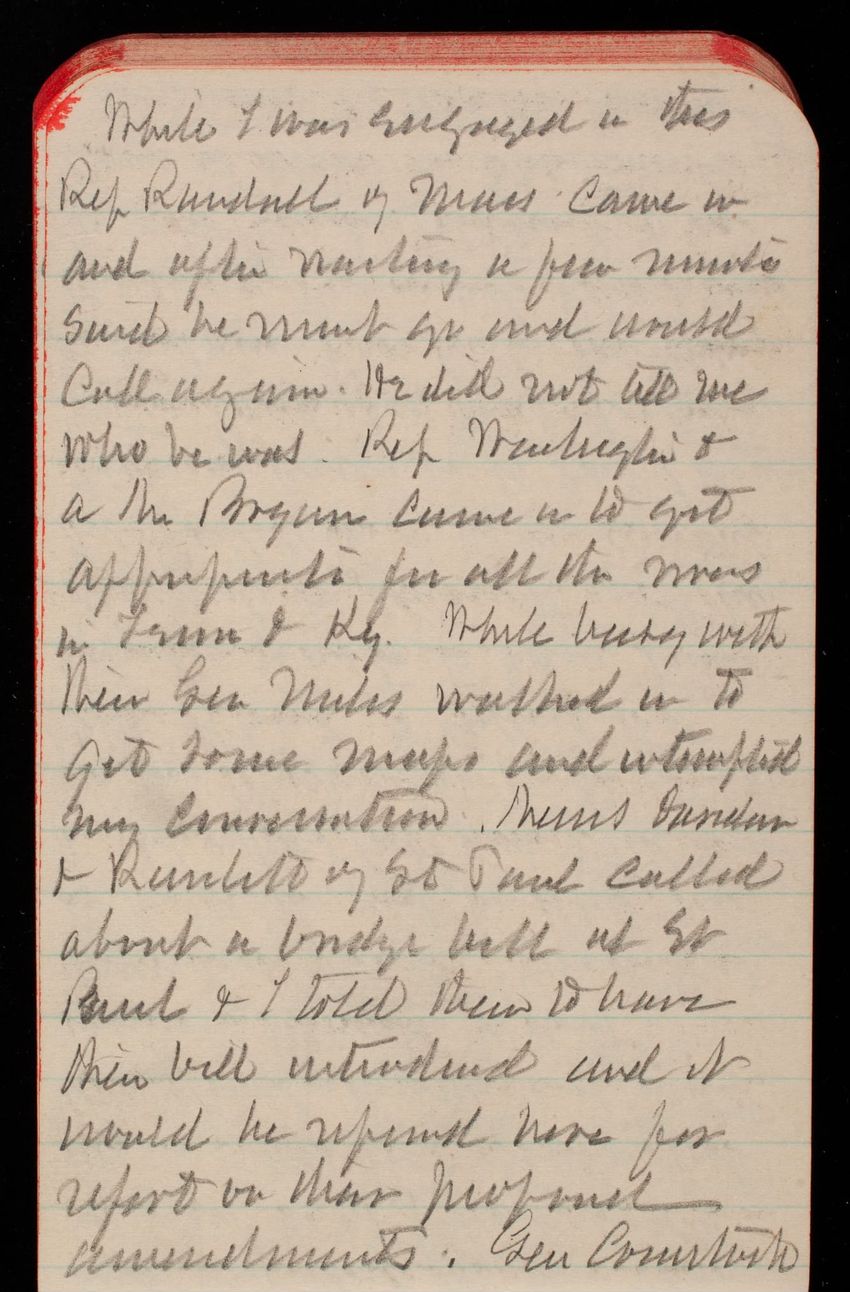 While I was engaged in this
Rep Randall of Mass came in
and after waiting a few minutes
said he must go and would
call again. He did not tell me
who he was. Rep Washington &
a Mr Bryan came in to get
appropriate for all the rivers
in Tenn & Ky. While busy with
them Gen Miles walked in to
get some maps and interrupted
my conversation. Messrs
& Rundlett of St Paul called
about a bridge bill at St
Paul & I told them to have
their bill introduced and it
would be referred here for
report on their proposed
amendments. Gen Comstock